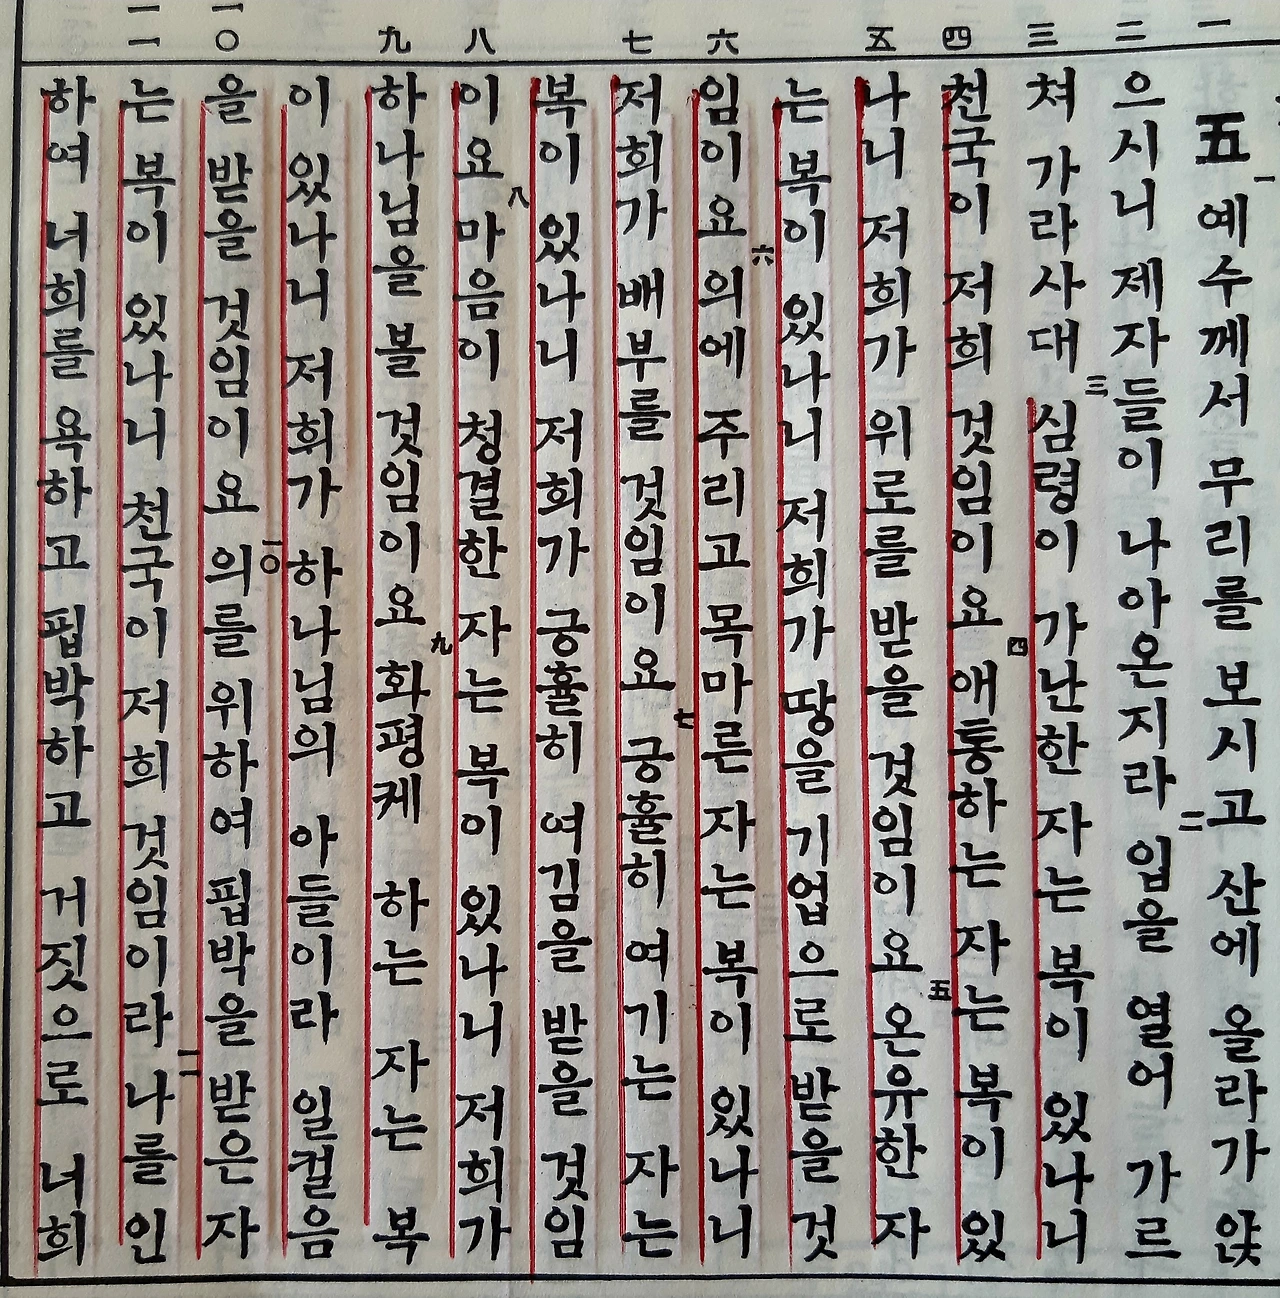 一 二 三 四 五 六 七 八 九 一〇 一一
五 一 예수께서 무리를 보시고 산에 올라가 앉
으시니 제자들이 나아온지라 二 입을 열어 가르
쳐 가라사대 三 심령이 가난한 자는 복이 있나니
천국이 저희 것임이요 四 애통하는 자는 복이 있
나니 저희가 위로를 받을 것임이요 五 온유한 자
는 복이 있나니 저희가 땅을 기업으로 받을 것
임이요 六 의에 주리고 목마른 자는 복이 있나니
저희가 배부를 것임이요 七 긍휼히 여기는 자는
복이 있나니 저희가 긍휼히 여김을 받을 것임
이요 八 마음이 청결한 자는 복이 있나니 저희가
하나님을 볼 것임이요 九 화평케 하는 자는 복
이 있나니 저희가 하나님의 아들이라 일컬음
을 받을 것임이요 一〇 의를 위하여 핍박을 받은 자
는 복이 있나니 천국이 저희 것임이라 一一 나를 인
하여 너희를 욕하고 핍박하고 거짓으로 너희